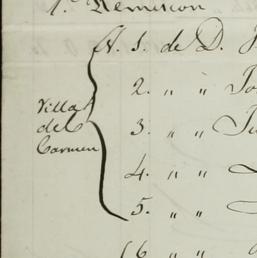 1.ª Remision
N. 1. de D. J
2. " " Jo
Villa
del
Carmen
3. " " Ju
4. " "
5. " "
6 " "